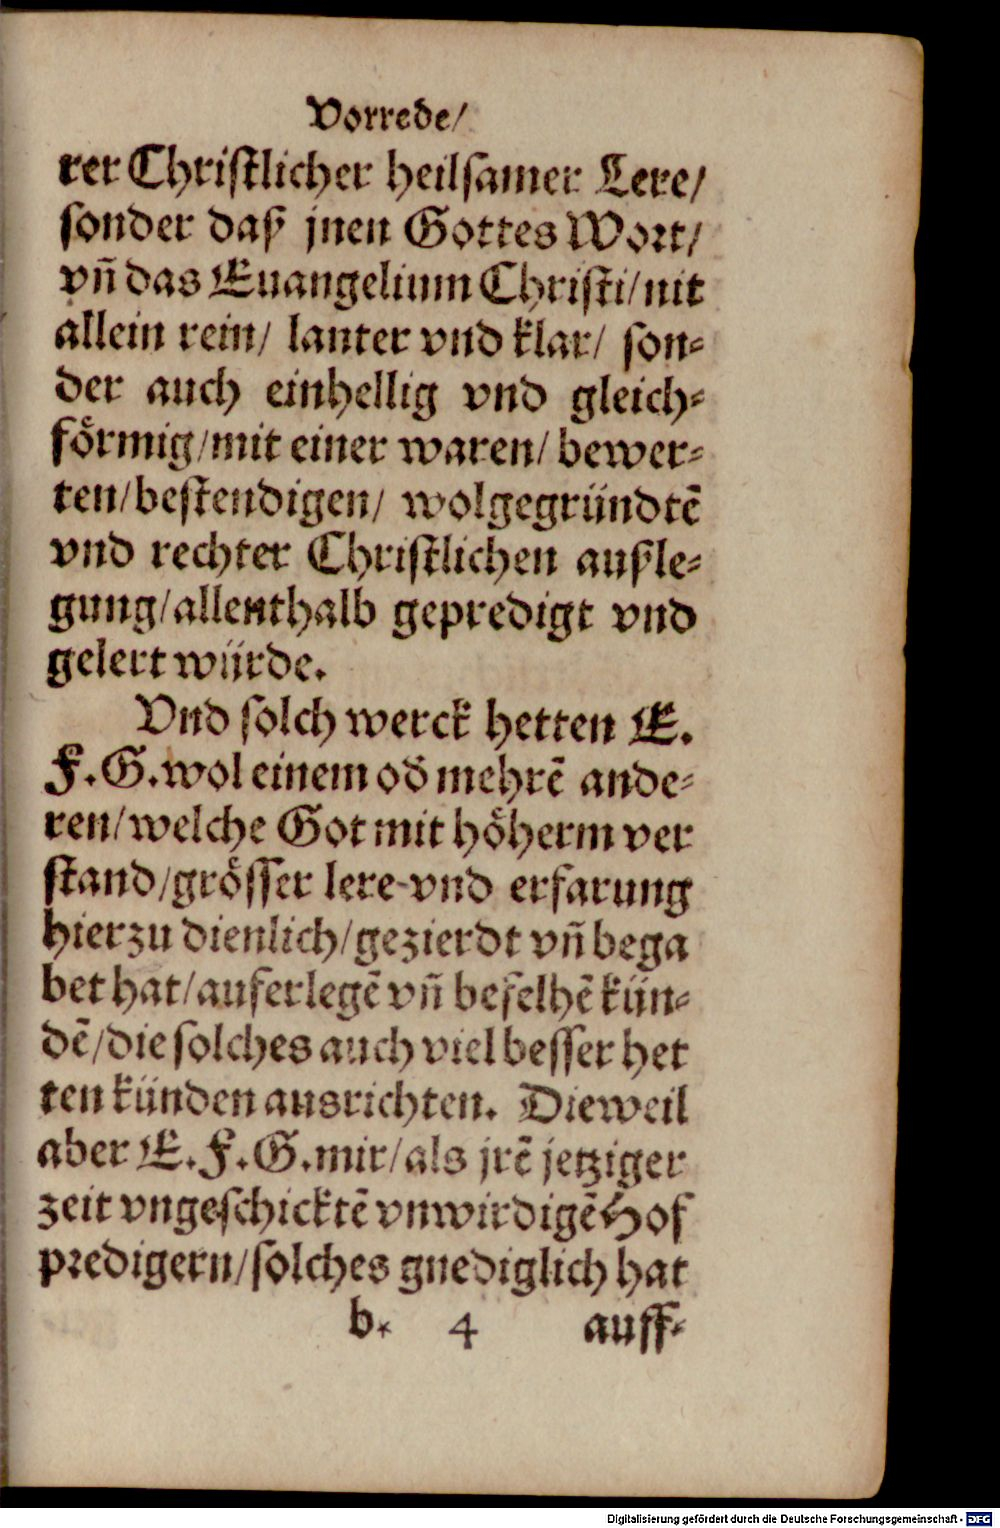 Vorrede/
rer Christlicher heilsamer Lere/
sonder daß jnen Gottes Wort/
vñ das Euangelium Christi/nit
allein rein/ lauter vnd klar/ son⸗
der auch einhellig vnd gleich⸗
förmig/mit einer waren/ bewer⸗
ten/bestendigen/ wolgegründtē
vnd rechter Christlichen außle⸗
gung/allenthalb gepredigt vnd
gelert würde.
Vnd solch werck hetten E.
F.G.wol einem oď mehrē ande⸗
ren/welche Got mit höherm ver
stand/grösser lere vnd erfarung
hierzu dienlich/gezierdt vñ bega
bet hat/auferlegē vñ befelhē kün⸗
dē/die solches auch viel besser het
ten künden ausrichten. Dieweil
aber E.F.G.mir/als jrē jetziger
zeit vngeschicktē vnwirdigē Hof
predigern/solches gnediglich hat
b* 4 auff⸗
Digitalisierung gefördert durch die Deutsche Forschungsgemeinschaft - DFG